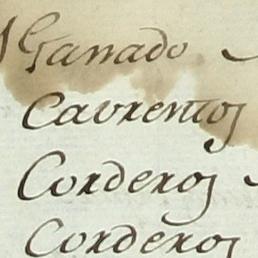 Ganado
Cavrentos
Corderos
Corderos